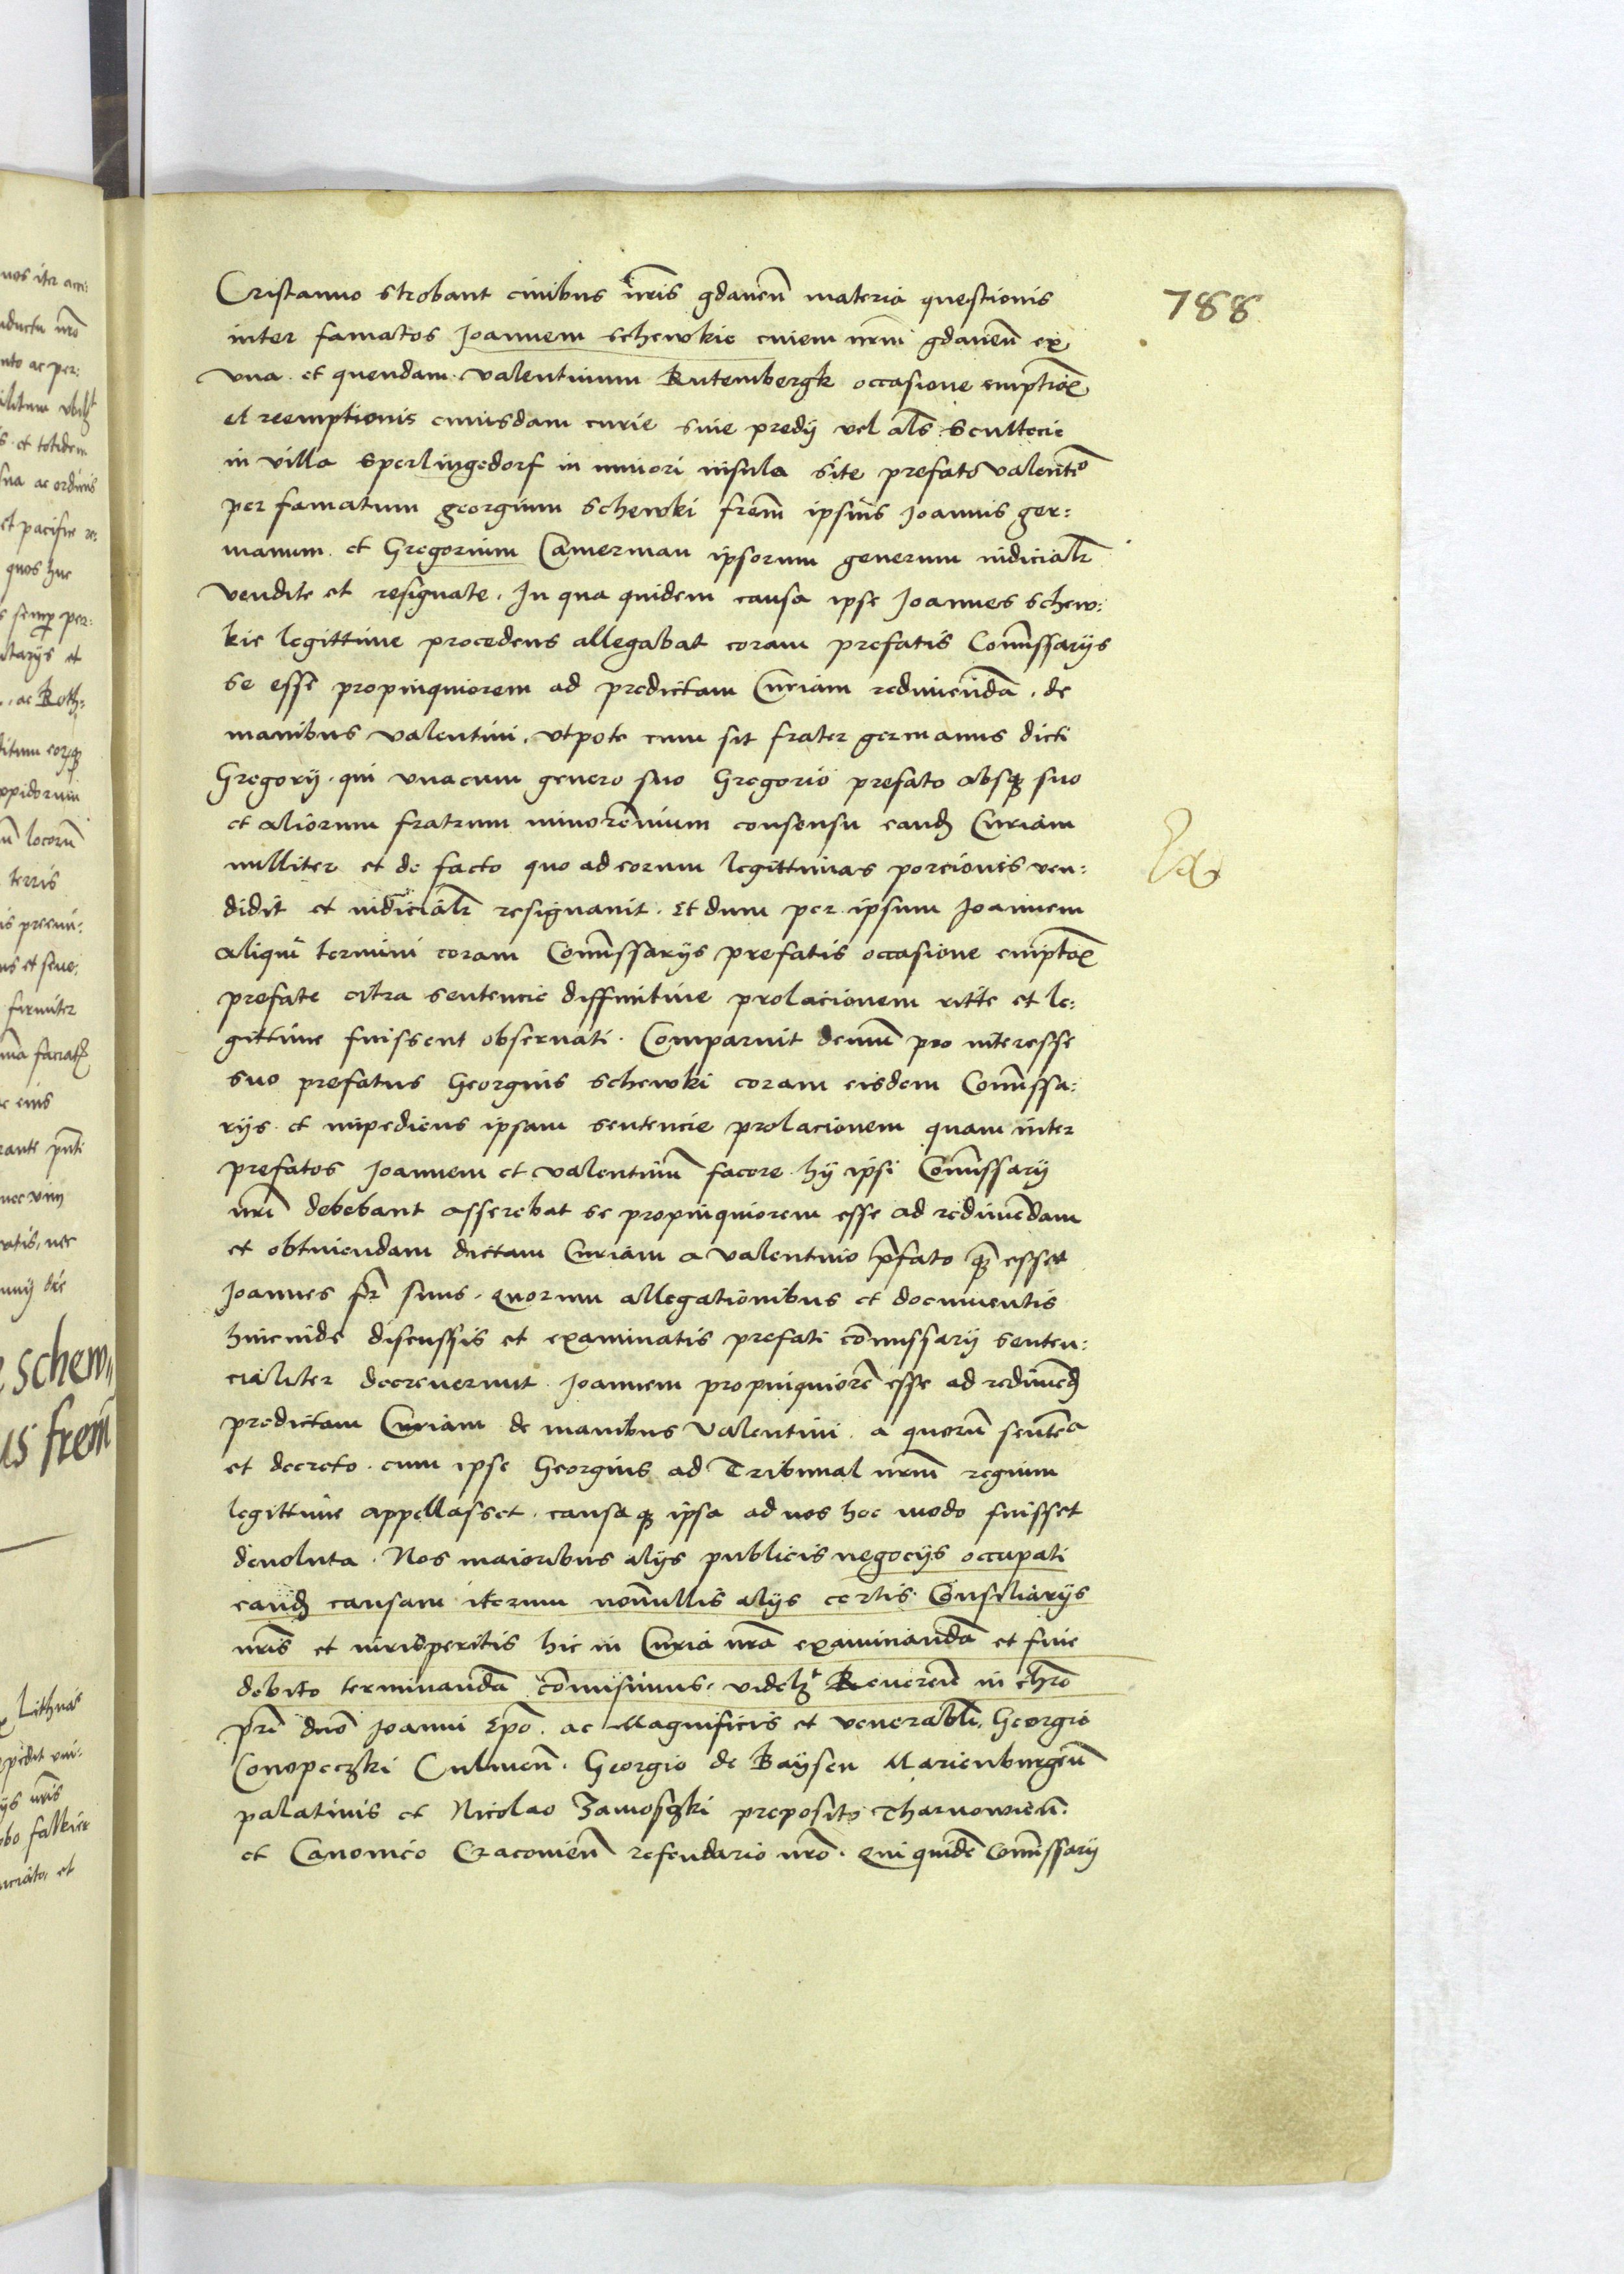 788
Cristanno Strobant civibus nr̃is gdaneñ materia questionis
inter famatos Joannem schewkie civem nrm̃ gdaneñ ex
vna et quendam valentinum Rutembergk occasione emptiõis
et reemptionis cuiusdam curie sive predij vel als̃ scultecie
in villa Sperlingsdorf in minori insula site prefato valentĩo
per famatum georgium schewki frem̃ ipsius Joannis ger:
manum et Gregorium Camerman ipsorum generum iudicialr̃
vendite et resignate. In qua quidem causa ipse Joannes schew:
kie legittime procedens allegabat coram prefatis Com̃issarijs
se esse propinquiorem ad predictam Curiam redimendã, de
manibus valentini, vtpote cum sit frater germanus dicti
Gregorij qui vnacum genero suo Gregorio prefato absq3 suo
et aliorum fratrum minorennium consensu eand3 Curiam
nulliter et de facto quo ad eorum legittimas porciones ven:
didit et iudicialr̃ resignavit. Et dum per ipsum Joannem
aliqui termini coram Com̃issarijs prefatis occasione emptõis
prefate citra sentencie diffinitive prolacionem ritte et le:
gittime fuissent observati. Comparuit demũ pro interesse
suo prefatus Georgius schewki coram eisdem Com̃issa:
rijs et impediens ipsam sentencie prolacionem quam inter
prefatos Joannem et valentinũ facere hij ipsi Com̃issarij
nrĩ debebant asserebat se propinquiorem esse ad redimẽdam
et obtinendam dictam Curiam a valentino p̃fato q3 esset
Joannes fr̃ suus. quorum allegationibus et documentis
hincinde discussis et examinatis prefati com̃issarij senten:
cialiter decreverunt Joannem propinquiorẽ esse ad redimẽd3
predictam Curiam de manibus valentini. a quorũ sentẽa
et decreto cum ipse Georgius ad Tribunal nrm̃ regium
legittime appellasset. causaq3 ipsa ad nos hoc modo fuisset
devoluta. Nos maioribus alijs publicis negocijs occupati
eand3 causam iterum nonnullis alijs certis Consiliarijs
nr̃is et iurisperitis hic in Curia nrã examinandã et fine
debito terminandã com̃isimus, videl3t Reverẽn in chrõ
prĩ dnõ Joanni Epõ. ac Magnificis et venerabli. Georgio
Conopeczki Culmeñ. Georgio de Baysen Marienburgeñ
palatinis et Nicolao Zamosczki preposito Tharnowieñ.
et Canonico Cracovieñ refendario nrõ. Qui quidẽ Com̃issarij